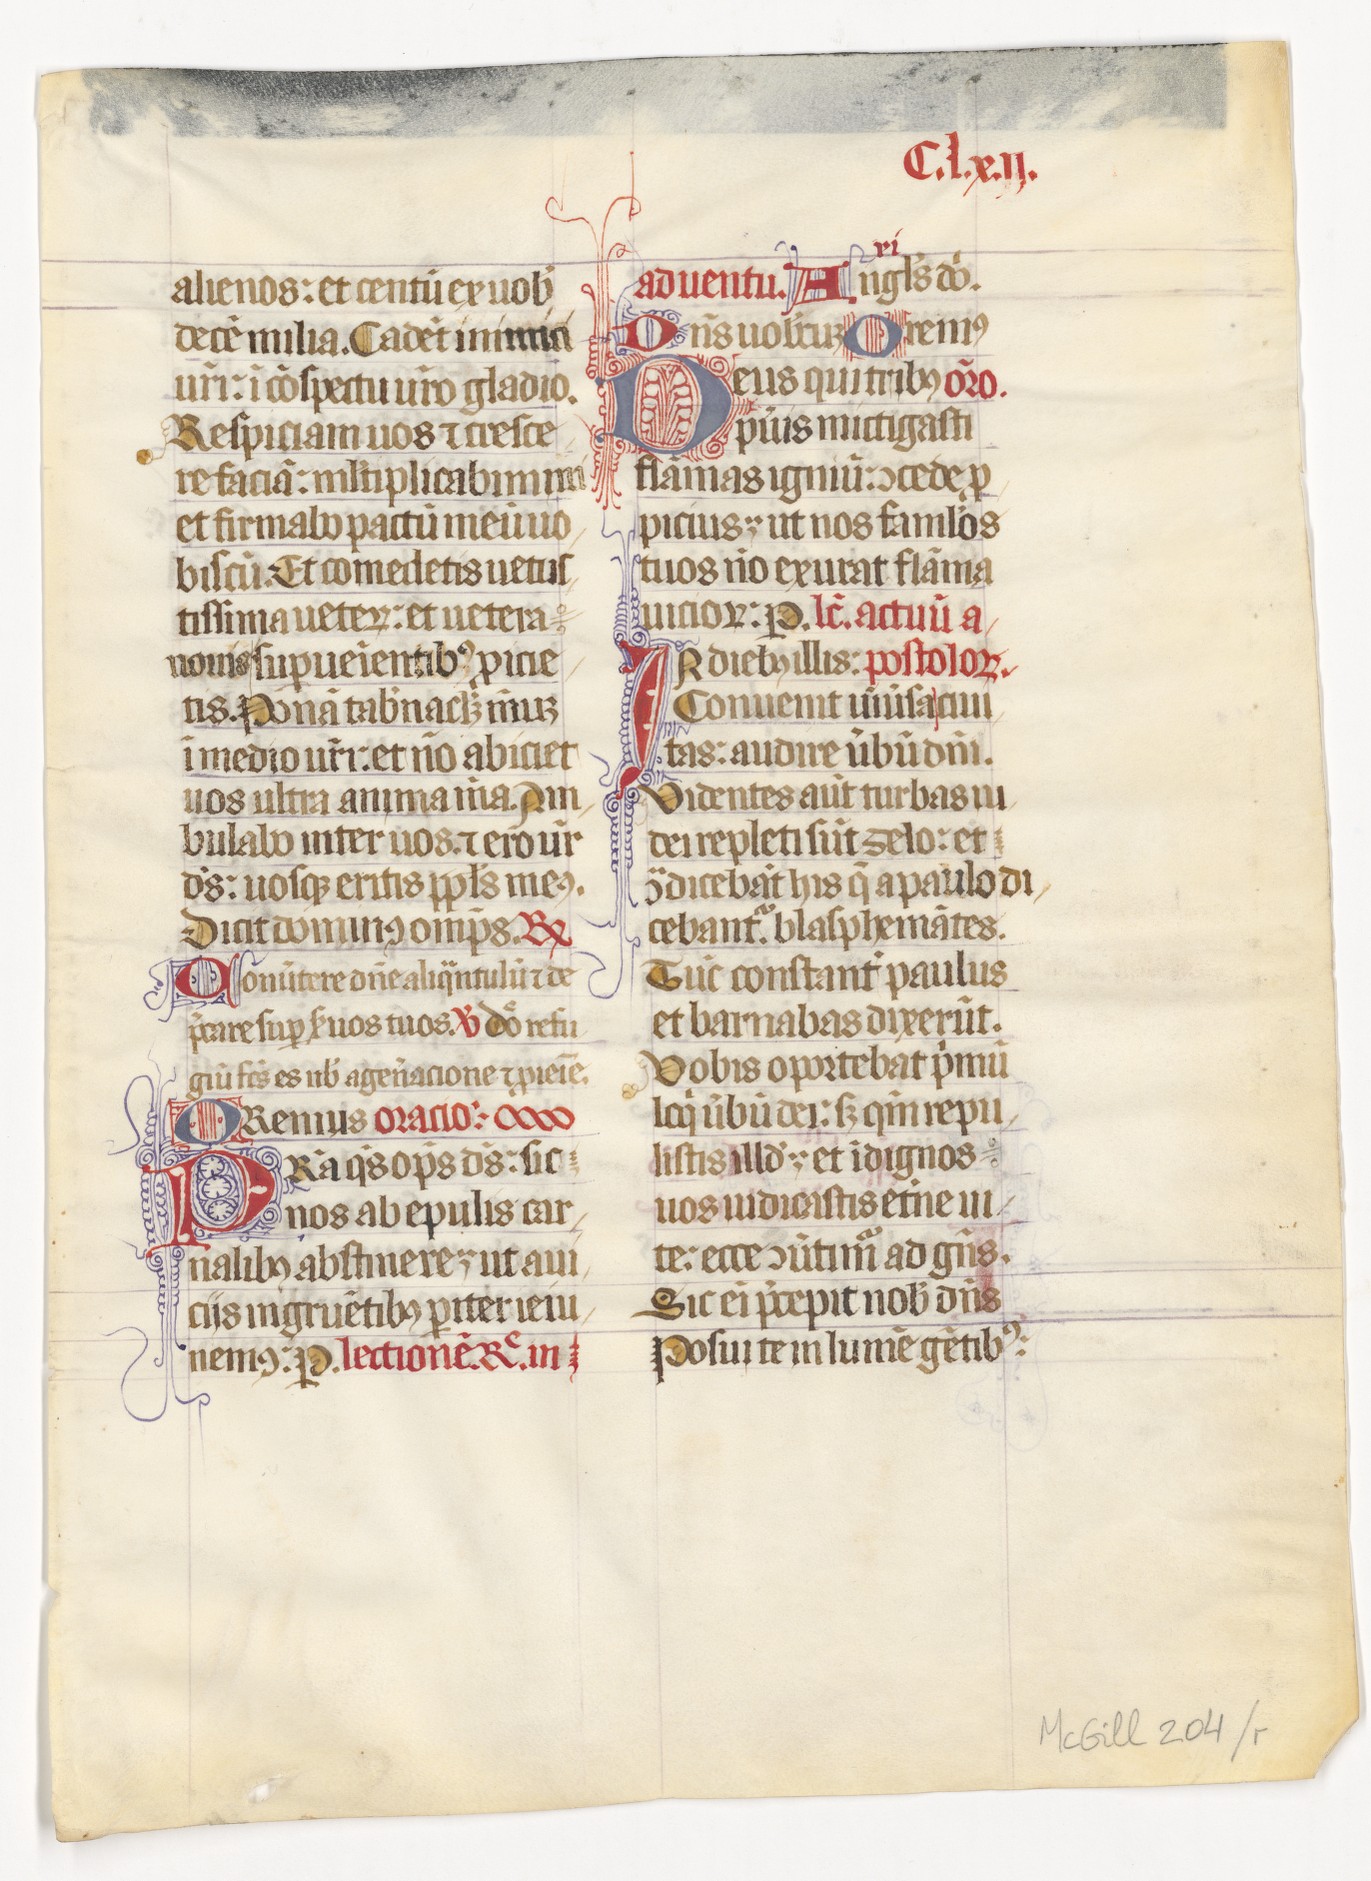 C.l.x.ij.
alienos: et centū ex uob̄
decē milia. Cadēt inimici
ur̄i: ī cōspectu ur̄o gladio.
Respiciam uos ⁊ cresce
re faciā: ml̄tiplicabimini
et firmabo pactū meū uo
biscū. Et comedetis uetus
tissima ueteꝝ: et uetera
nouis supueīentibꝰ ꝓicie
tis. Ponā tab̄nacl̄ꝫ m̄uꝫ
ī medio ur̄i: et nō abiciet
uos ultra anima m̄a. Am
bulabo inter uos. ⁊ ero ur̄
d̄s: uosqꝫ eritis ppl̄s meꝰ.
Dicit dominꝰ omp̄s. R̄
Conūtere dn̄e aliqͣntulū ⁊ de
p̄care suꝑ s̄uos tuos. V̄ dō refu
giū fc̄s es nb̄ a geñacione ⁊ ꝓieīe.
ORemus oracio:
PRa q̄s op̄s d̄s: sic
nos ab epulis car
nalibꝰ abstinere: ut a ui
ciis ingruētibꝰ ꝑiter ieiu
nemꝰ: P. lectionē. Rͨ. in
aduentu. Angl̄s dō.
ri
Dn̄s uob̄cuꝫ Oremꝰ
Deus qui tribꝰ or̄o.
puīs mittigasti
flāmas igniū: ↄcede ꝓ
picius: ut nos famlōs
tuos nō exurat flāma
uicioꝝ: P. lc̄. actuū a
IN diebꝰ illis: postoloꝝ.
Conuenit uīūsa ciui
tas: audire ūbū dn̄i.
Videntes aūt turbas iu
dei repleti sūt zelo: et
ↄ̄dicebāt his q̄ a paulo di
cebantᷣ. blasphemātes.
Tūc constantᷣ paulus
et barnabas dixerūt.
Vobis oportebat p̄mū
lcq̄i ūbū dei: sꝫ qm̄ repu
listis illđ: et īdignos
uos iudicastis et̄ne ui
te: ecce ↄūtimᷣ ad gn̄s.
Sic eī p̄cepit nob̄ dn̄s
Posui te in lumē gētibꝰ:
McGill 204/r